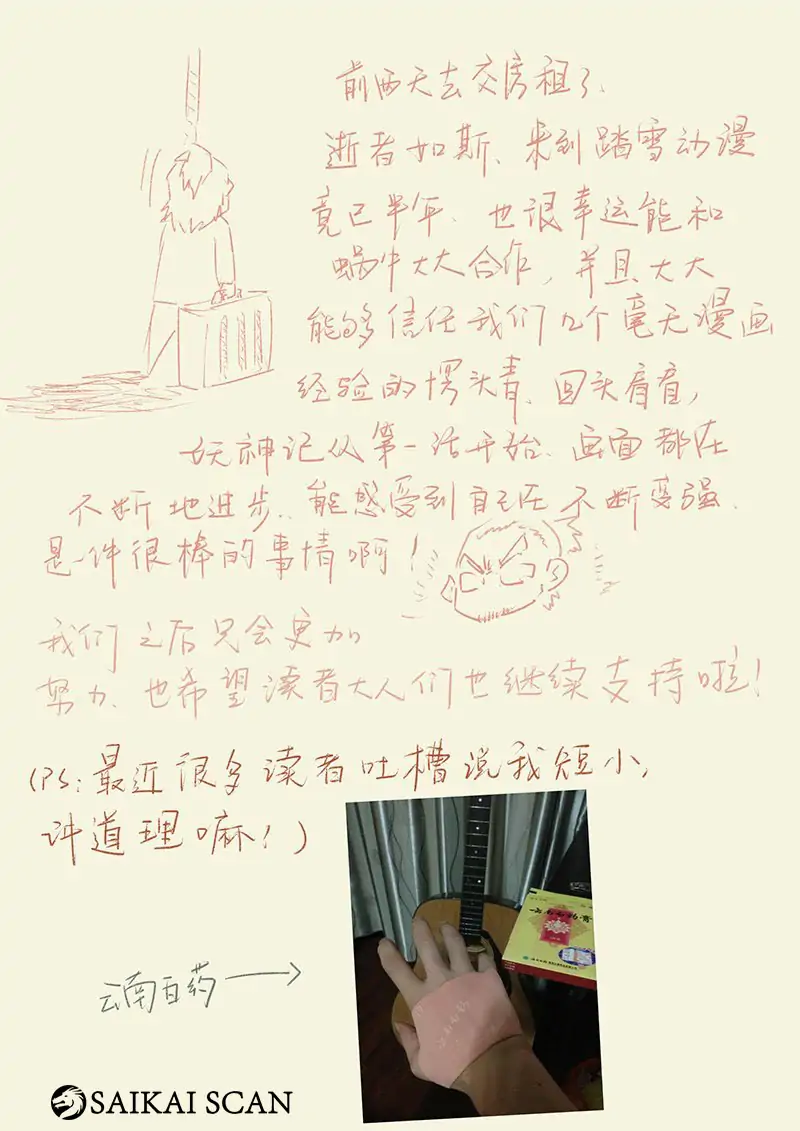 前两天去交房租了、
逝者如斯、来到踏雪动漫
竟已半年、也很幸运能和
蜗牛大大合作，并且大大
能够信任我们几个毫无漫画
经验的愣头青、回头看看，
妖神记从第一话开始、画面都在
不断地进步、能感受到自己在不断变强、
是一件很棒的事情啊！
我们之后只会更加
努力、也希望读者大人们也继续支持啦！
(PS:最近很多读者吐槽说我短小，
讲道理嘛！)
云南白药
SAIKAI SCAN